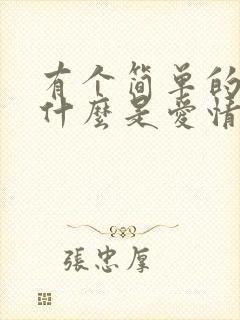 有个简单的
什麼是愛情
張忠厚